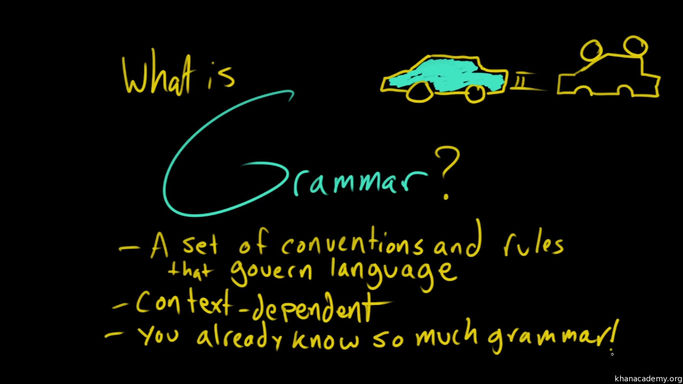 What is
Grammar?
- A set of conventions and rules
that govern language
- Context-dependent
- You already know so much grammar!
khanacademy.org